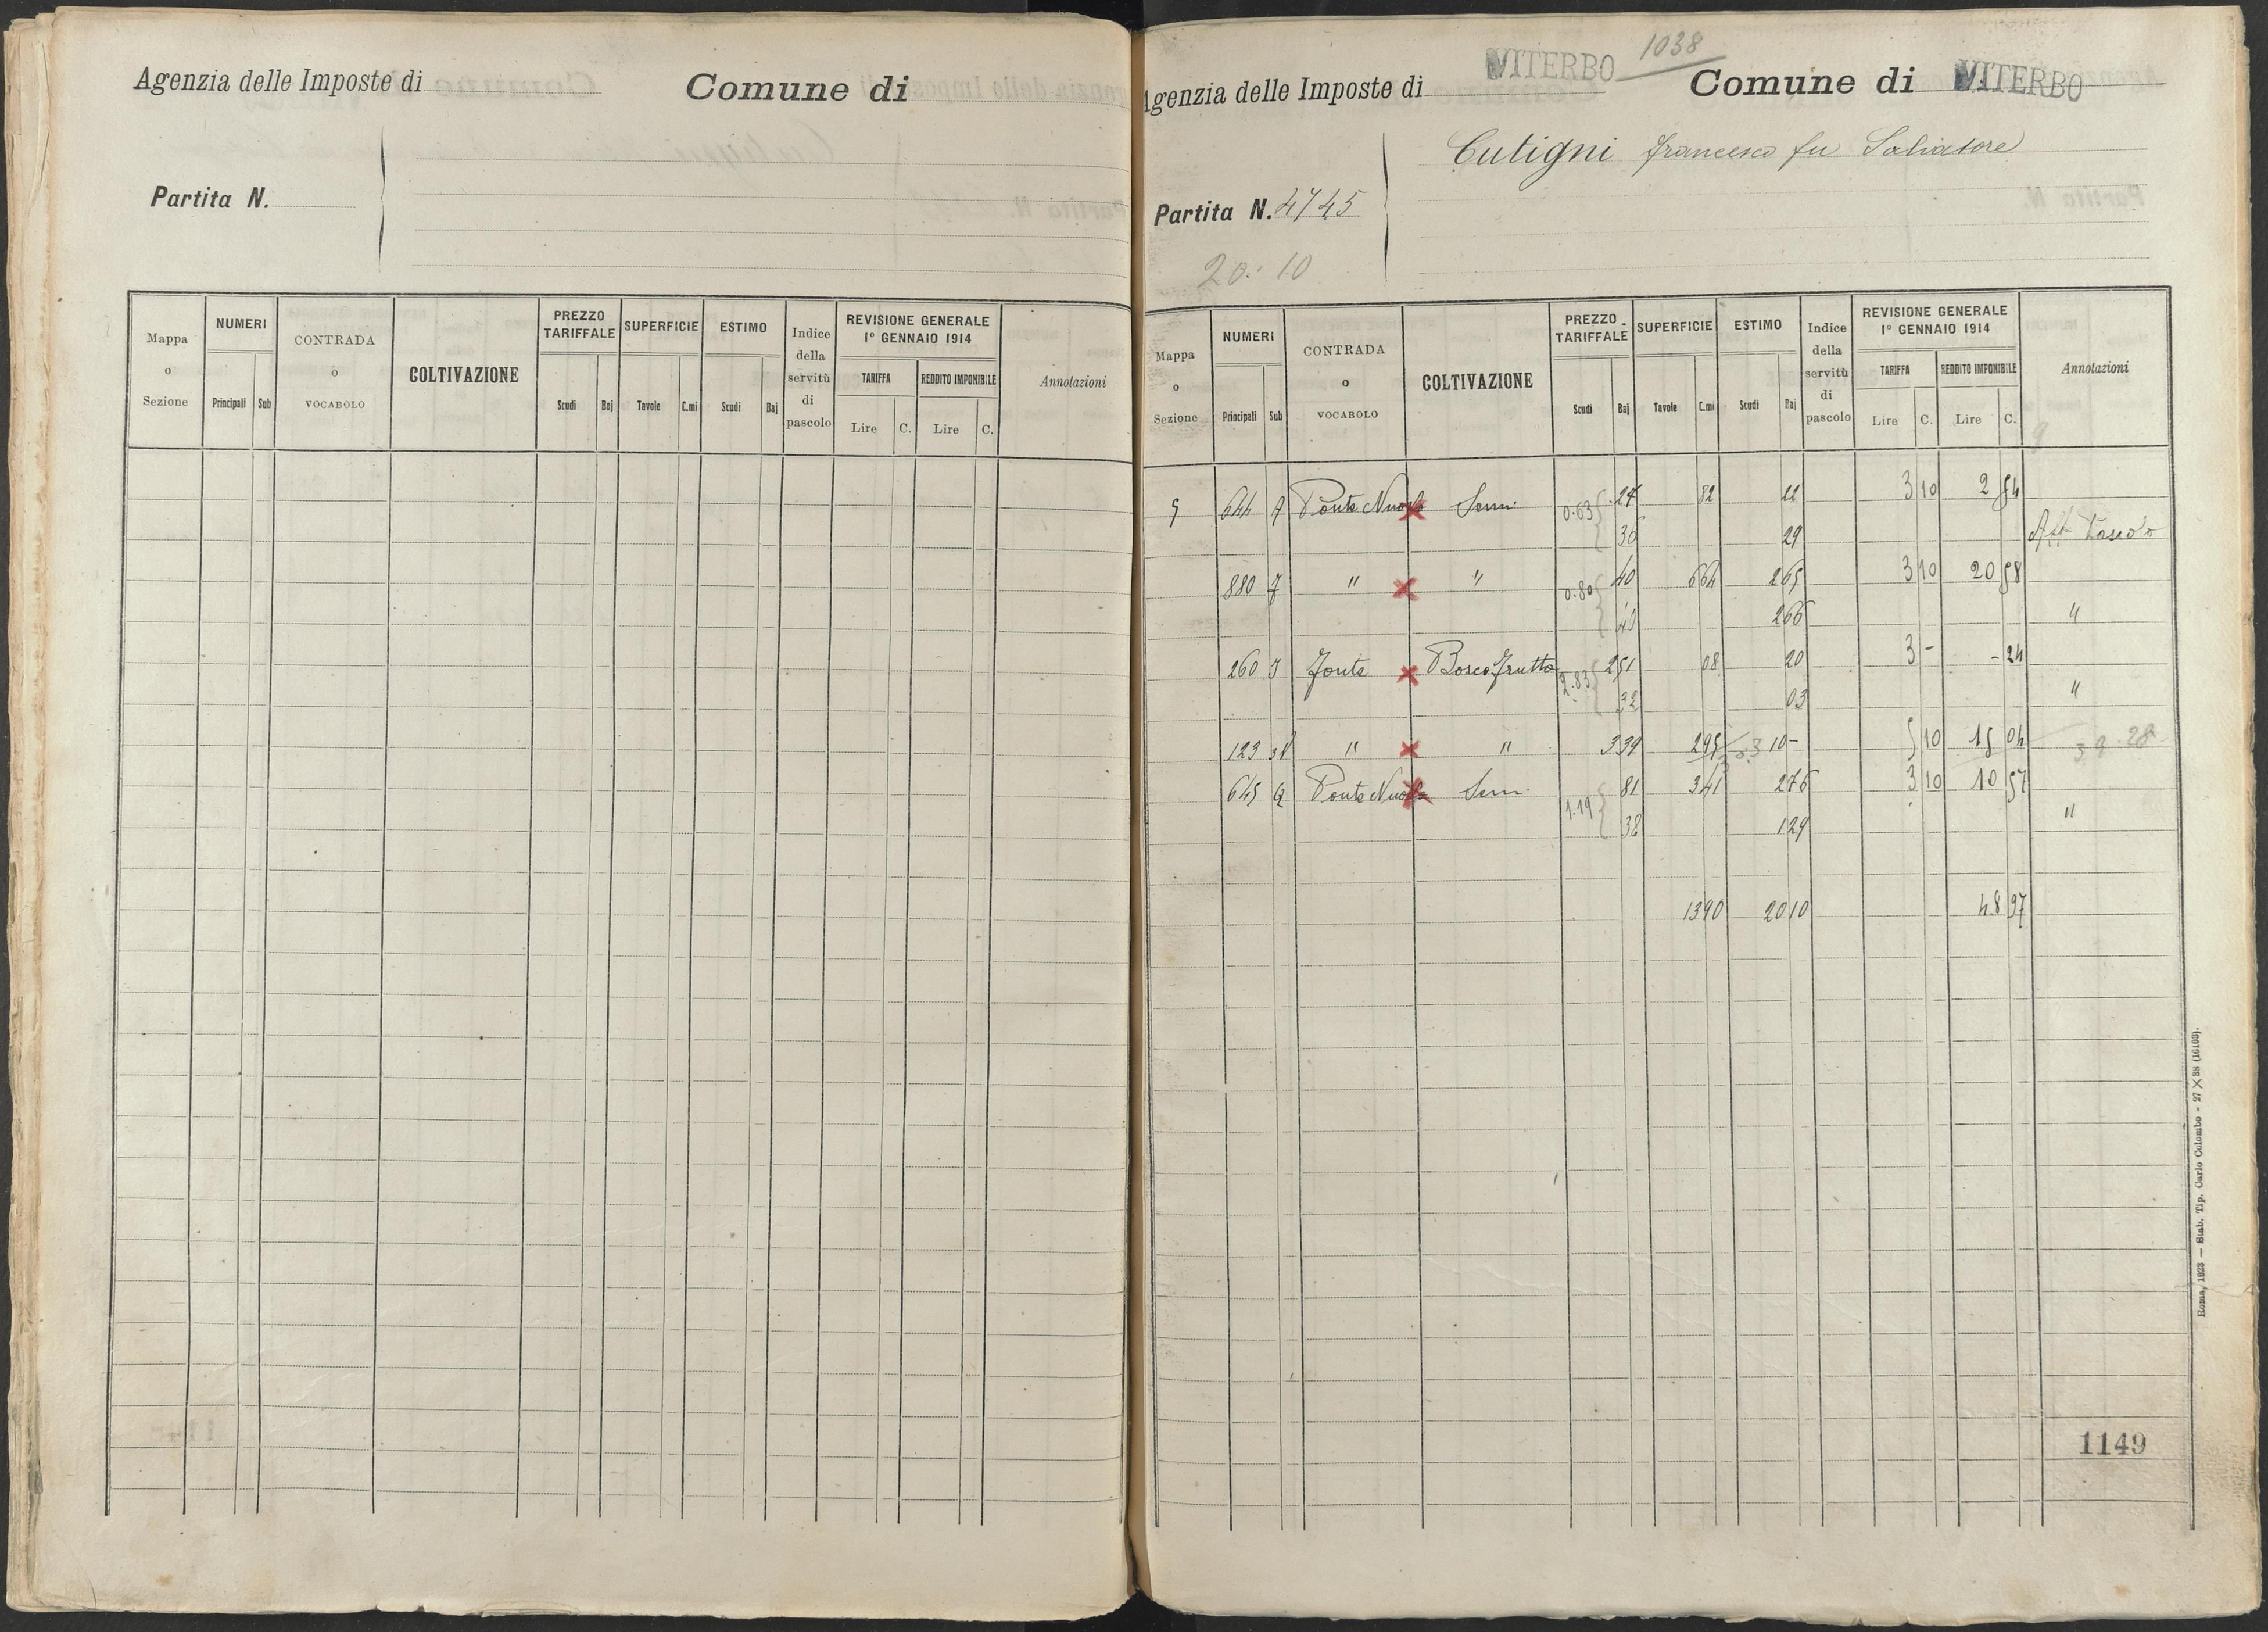 Agenzia delle Imposte di
Comune di
Partita N.
Mappa o Sezione
NUMERI
Principali
Sub
CONTRADA o VOCABOLO
COLTIVAZIONE
PREZZO TARIFFALE
Scudi
Baj
SUPERFICIE
Tavole
C.mi
ESTIMO
Scudi
Baj
Indice della servitù di pascolo
REVISIONE GENERALE
1° GENNAIO 1914
TARIFFA
REDDITO IMPONIBILE
Lire
C.
Lire
C.
Annotazioni
1038
Agenzia delle Imposte di VITERBO
Comune di VITERBO
Cutigni Francesco fu Salvatore
Partita N. 4745
20.10
Mappa o Sezione
NUMERI
Principali
Sub
CONTRADA o VOCABOLO
COLTIVAZIONE
PREZZO TARIFFALE
Scudi
Baj
SUPERFICIE
Tavole
C.mi
ESTIMO
Scudi
Baj
Indice della servitù di pascolo
REVISIONE GENERALE
1° GENNAIO 1914
TARIFFA
REDDITO IMPONIBILE
Lire
C.
Lire
C.
Annotazioni
9
5 644 Ponte Nuovo Sem. 0.63 27 82 22 3 10 2 54
36 29 Aff Pascolo
880 " " 0.80 40 664 265 3 10 20 58
40 266 "
260 Fonte Bosco Frutto 2.83 251 08 20 3 - - 24
32 03 "
123 " " 339 295 10 - 5 10 15 04 39.28
645 Ponte Nuovo Sem. 1.19 81 341 276 3 10 10 57
38 129 "
1390 20 10 48 97
1149
Roma, 1923 — Stab. Tip. Carlo Colombo - 27 X 38 (16163).